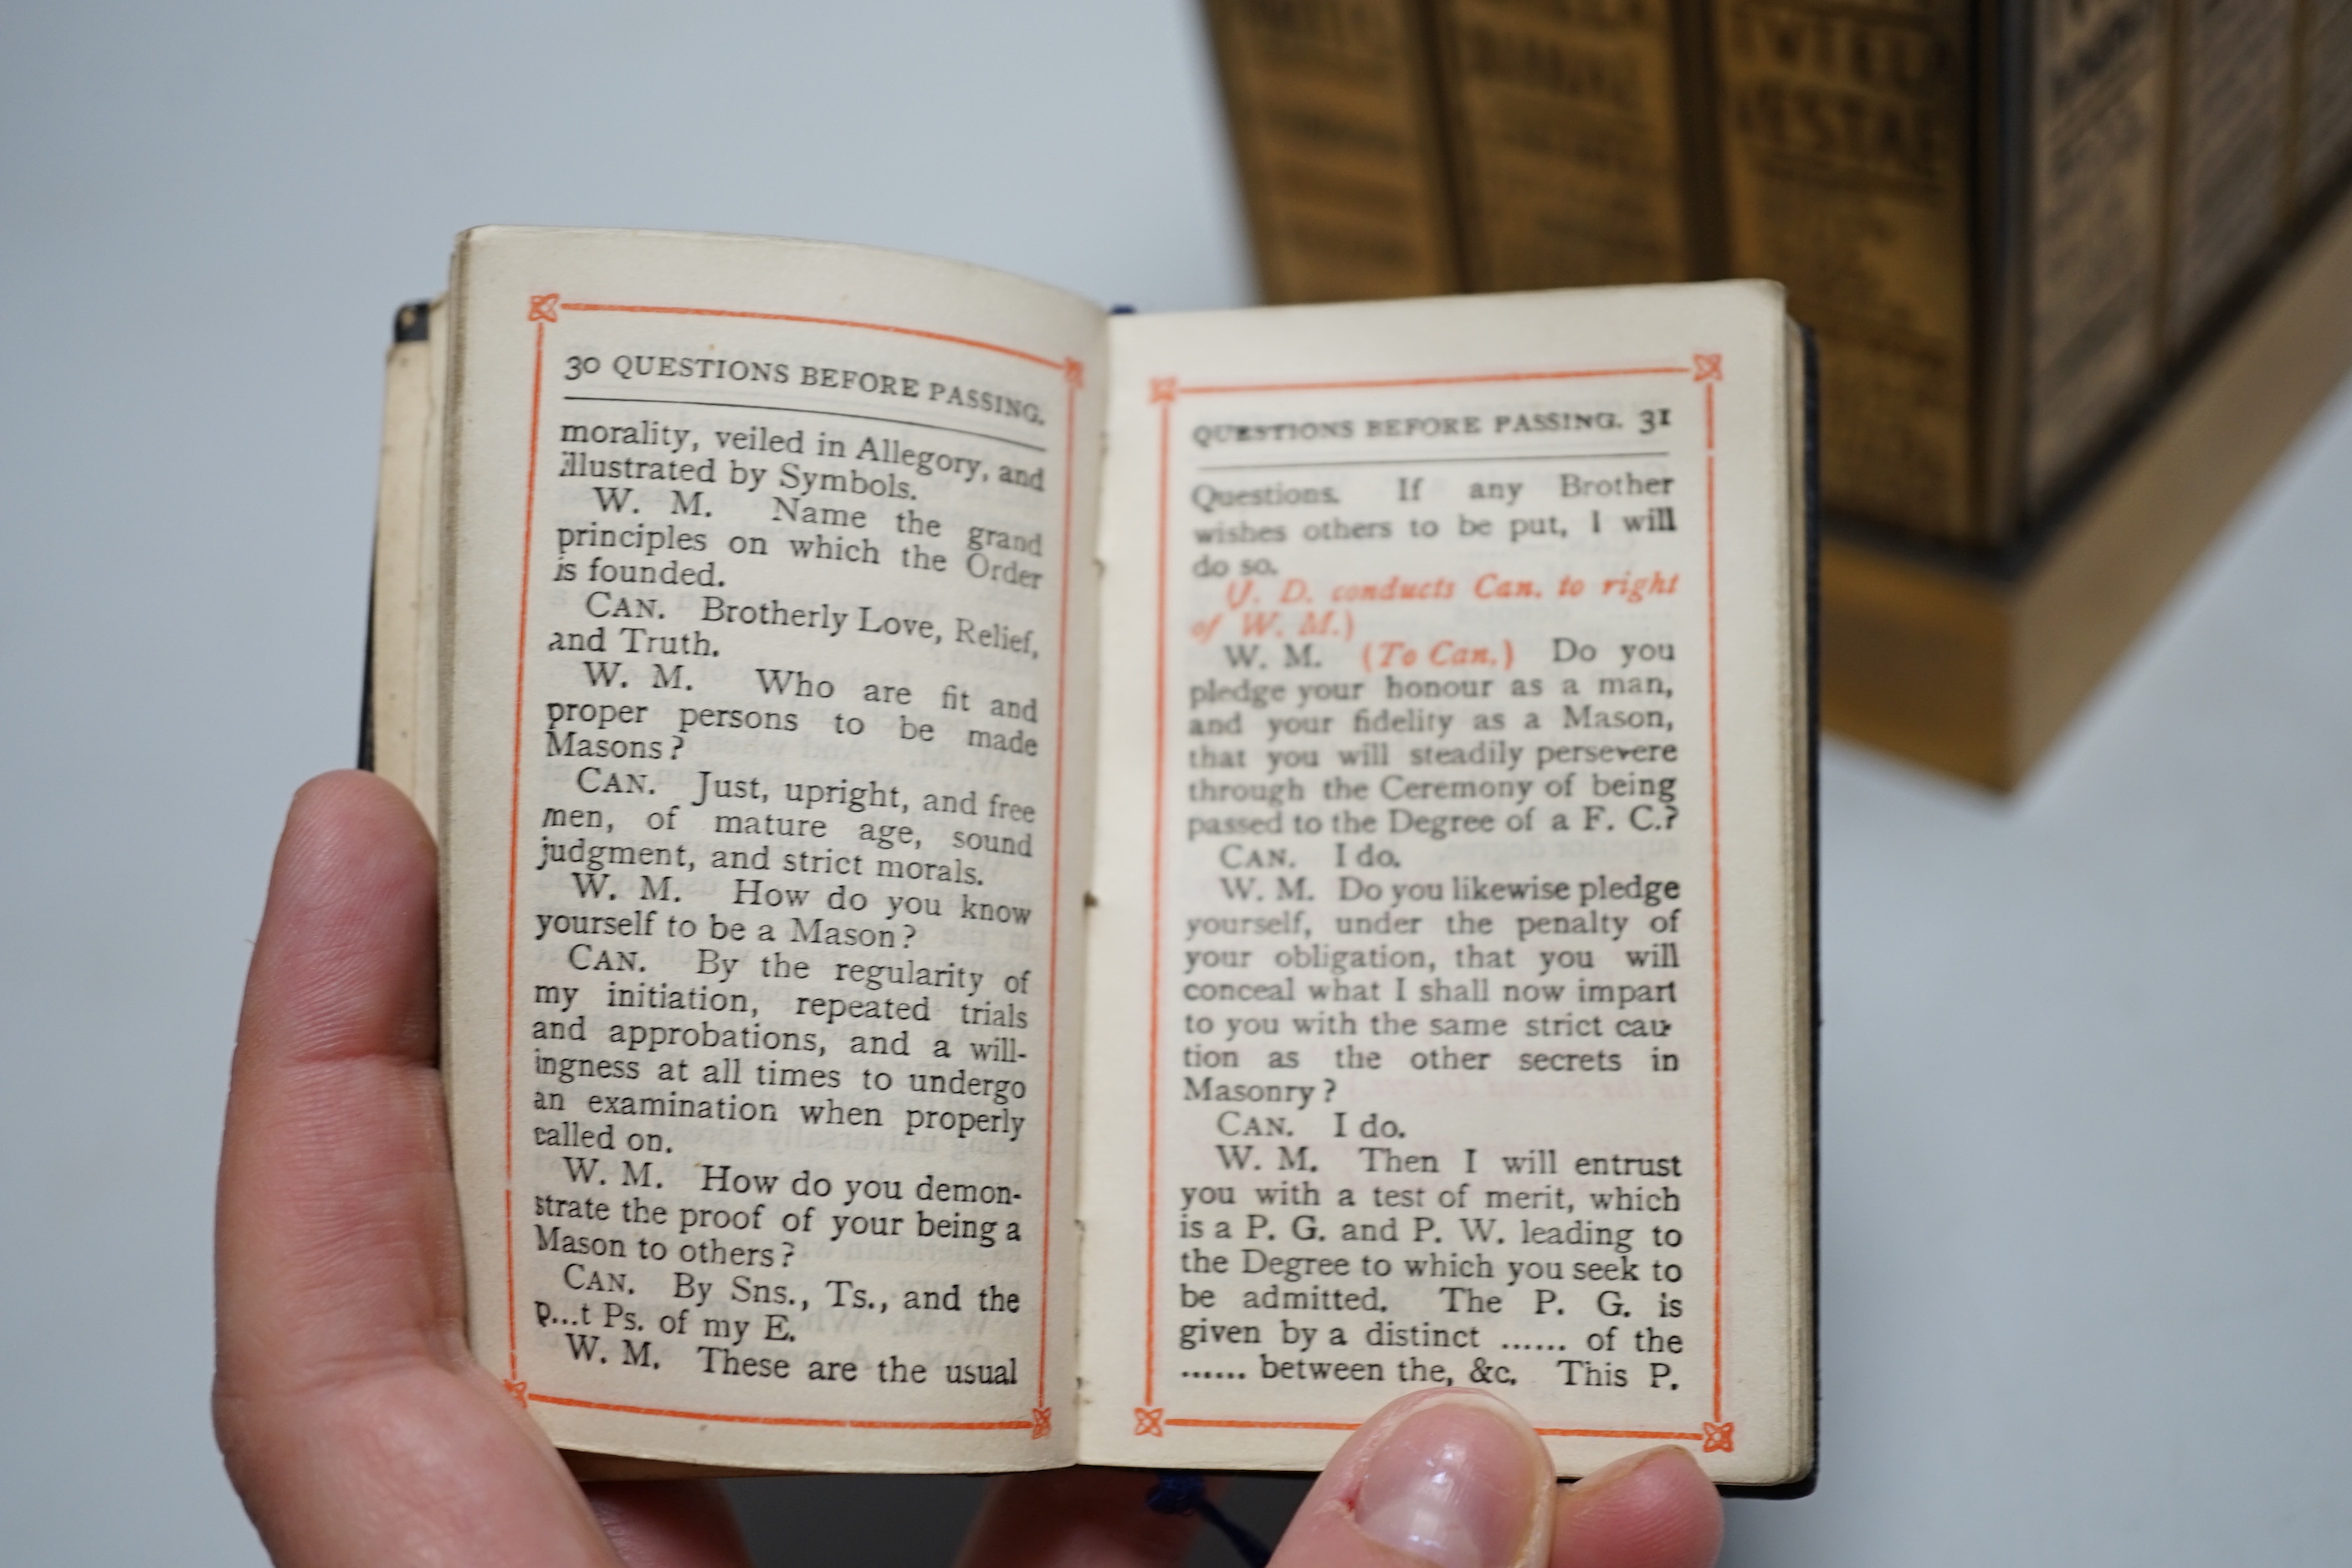 30 QUESTIONS BEFORE PASSING.
morality, veiled in Allegory, and
illustrated by Symbols.
W. M. Name the grand
principles on which the Order
is founded.
CAN. Brotherly Love, Relief,
and Truth.
W. M. Who are fit and
proper persons to be made
Masons?
CAN. Just, upright, and free
men, of mature age, sound
judgment, and strict morals.
W. M. How do you know
yourself to be a Mason?
CAN. By the regularity of
my initiation, repeated trials
and approbations, and a will-
ingness at all times to undergo
an examination when properly
called on.
W. M. How do you demon-
strate the proof of your being a
Mason to others?
CAN. By Sns., Ts., and the
p...t Ps. of my E.
W. M. These are the usual
QUESTIONS BEFORE PASSING. 31
Questions. If any Brother
wishes others to be put, I will
do so.
(J. D. conducts Can. to right
of W. M.)
W. M. (To Can.) Do you
pledge your honour as a man,
and your fidelity as a Mason,
that you will steadily persevere
through the Ceremony of being
passed to the Degree of a F. C.?
CAN. I do.
W. M. Do you likewise pledge
yourself, under the penalty of
your obligation, that you will
conceal what I shall now impart
to you with the same strict cau-
tion as the other secrets in
Masonry?
CAN. I do.
W. M. Then I will entrust
you with a test of merit, which
is a P. G. and P. W. leading to
the Degree to which you seek to
be admitted. The P. G. is
given by a distinct ...... of the
...... between the, &c. This P.